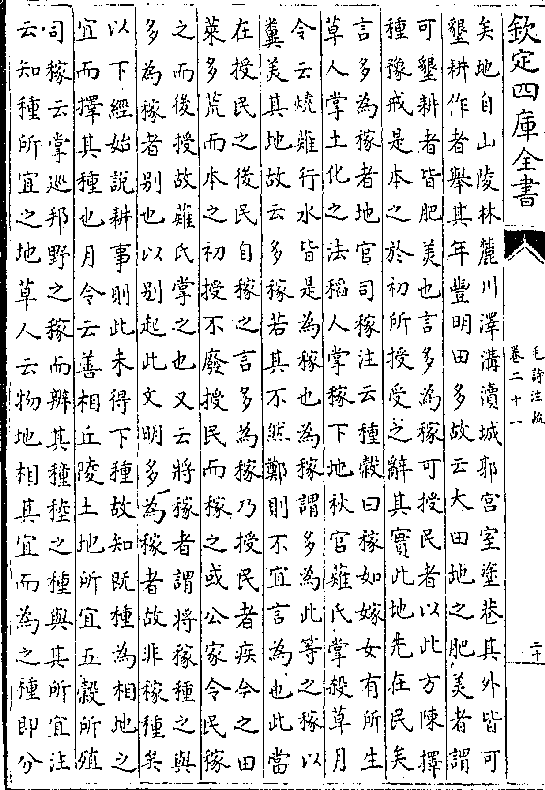 欽定四庫全書
毛詩注疏
卷二十一
二十
矣地自山陵林麓川澤溝瀆城郭宮室塗巷其外皆可
墾耕作者舉其年豐明田多故云大田地之肥美者謂
可墾耕者皆肥美也言多為稼可授民者以此方陳擇
種豫戒是本之於初所授受之辭其實此地先在民矣
言多為稼者地官司稼注云種穀曰稼如嫁女有所生
草人掌土化之法稻人掌稼下地秋官薙氏掌殺草月
令云燒薙行水皆是為稼也為稼謂多為此等之稼以
糞美其地故云多稼若其不然鄭則不宜言為也此當
在授民之後民自稼之言多為稼乃授民者疾今之田
萊多荒而本之初授不廢授民而稼之或公家令民稼
之而後授故薙氏掌之也又云將稼者謂將稼種之與
多為稼者別也以別起此文明多為稼者故非稼種矣
以下經始說耕事則此未得下種故知既種為相地之
宜而擇其種也月令云善相丘陵土地所宜五穀所殖
司稼云掌巡邦野之稼而辨其種稑之種與其所宜注
云知種所宜之地草人云物地相其宜而為之種即分